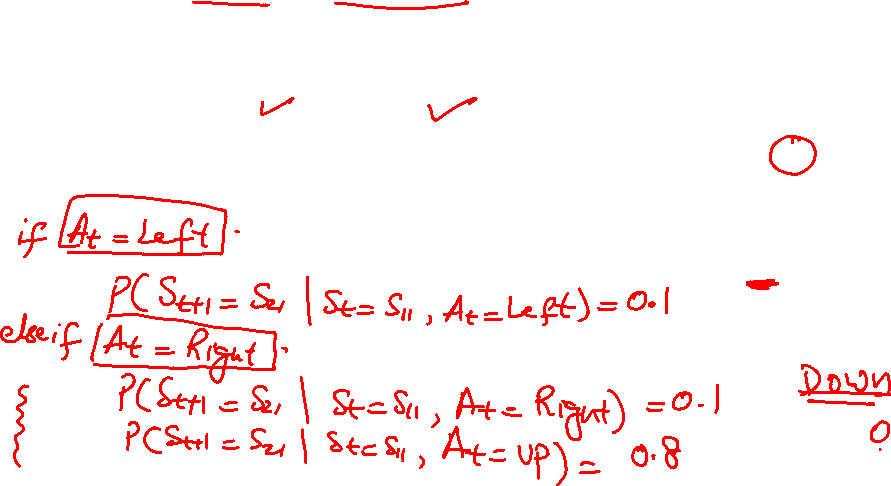 if At = Left.
P(St+1 = S21 | St = S11, At = Left) = 0.1
else if At = Right.
P(St+1 = S21 | St = S11, At = Right) = 0.1
DOWN
P(St+1 = S21 | St = S11, At = UP) = 0.8
0